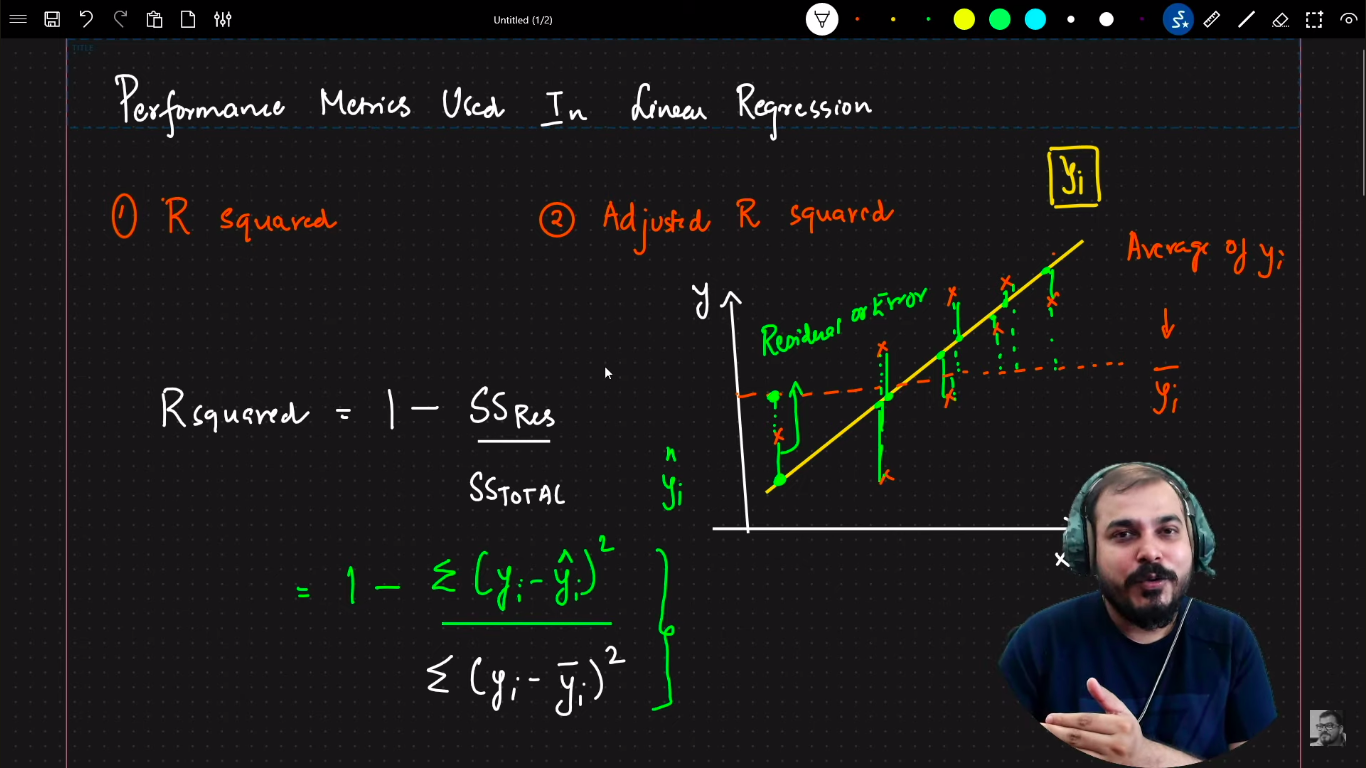 Untitled (1/2)
TITLE
Performance Metrics Used In Linear Regression
yi
① R squared
② Adjusted R squared
Average of yi
y
Residual or Error
R squared = 1 - SS Res
SS TOTAL
ŷi
ȳi
x
= 1 - Σ (yi - ŷi)²
Σ (yi - ȳi)²